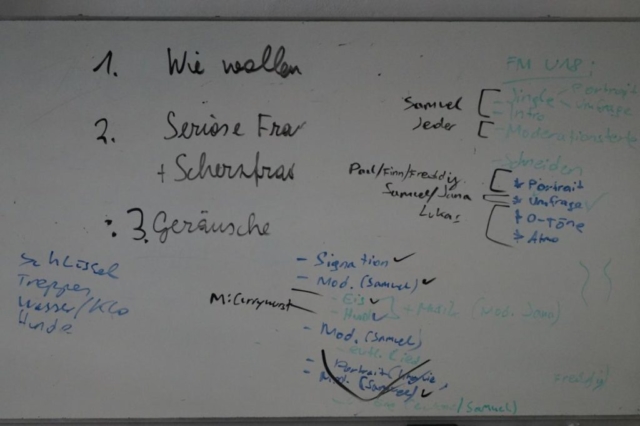 1. Wie wollen
2. Seriöse Fra
+ Scherzfrag
: 3. Geräusche
Schlüssel
Treppen
Wasser/Klo
Hunde
FM U18:
Samuel
- Jingle - Portrait
- Umfrage
- Intro
Jeder
- Moderationstexte
- Schneiden
Paul/Finn/Freddy
* Portrait
Samuel/Jana
* Umfrage ✓
Lukas
* O-Töne
* Atmo
- Signation ✓
- Mod. (Samuel) ✓
M: Currywurst
- Eis ✓
- Hunde ✓
+ Musik (Mod. Jana)
- Mod. (Samuel)
- Portrait
- Mod. (Samuel) ✓
Freddy
/Samuel)